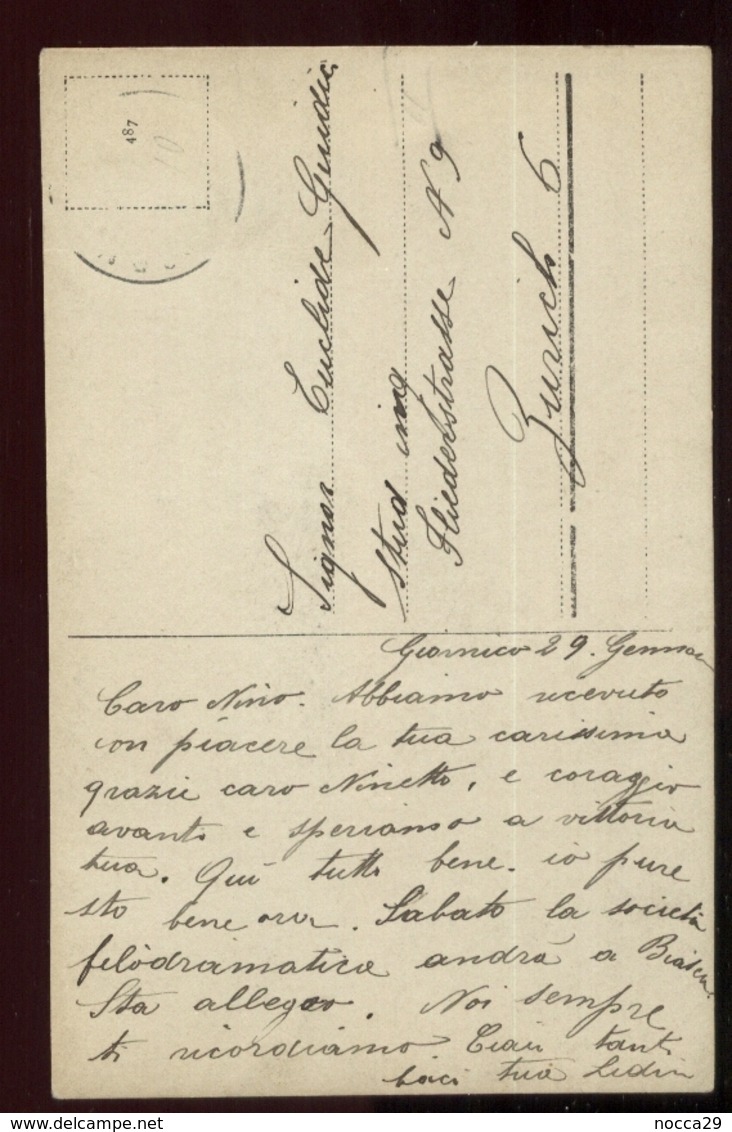 487
10
Signor Euclide Giudic
stud ing
Fliederstrasse N 9
Zurich 6
Giornico 29. Genna
Caro Nino. Abbiamo ricevuto
con piacere la tua carissima
grazie caro Ninetto, e coraggio
avanti e speriamo a vittoria
tua. Qui tutti bene. io pure
sto bene ora. Sabato la società
filodramatica andrà a Biasca.
Sta allegro. Noi sempre
ti ricordiamo Ciau tanti
baci tua
delcampe.net
nocca29